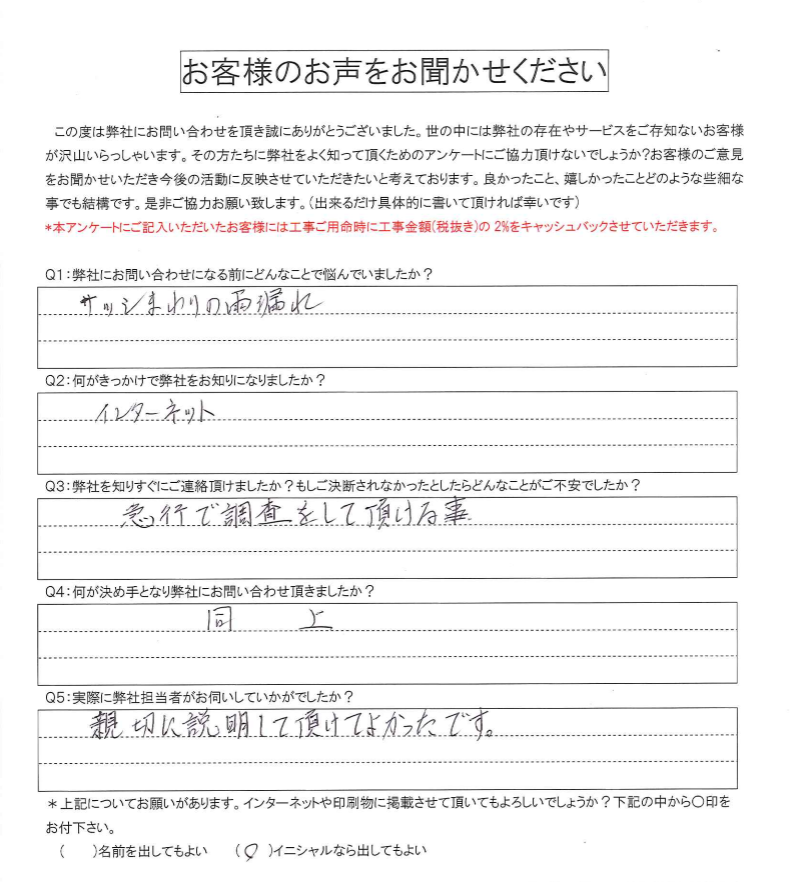 お客様のお声をお聞かせください
この度は弊社にお問い合わせを頂き誠にありがとうございました。世の中には弊社の存在やサービスをご存知ないお客様
が沢山いらっしゃいます。その方たちに弊社をよく知って頂くためのアンケートにご協力頂けないでしょうか?お客様のご意見
をお聞かせいただき今後の活動に反映させていただきたいと考えております。良かったこと、嬉しかったことどのような些細な
事でも結構です。是非ご協力お願い致します。(出来るだけ具体的に書いて頂ければ幸いです)
*本アンケートにご記入いただいたお客様には工事ご用命時に工事金額(税抜き)の 2%をキャッシュバックさせていただきます。
Q1:弊社にお問い合わせになる前にどんなことで悩んでいましたか?
サッシまわりの雨漏れ
Q2:何がきっかけで弊社をお知りになりましたか?
インターネット
Q3:弊社を知りすぐにご連絡頂けましたか?もしご決断されなかったとしたらどんなことがご不安でしたか?
急行で調査をして頂ける事
Q4:何が決め手となり弊社にお問い合わせ頂きましたか?
同 上
Q5:実際に弊社担当者がお伺いしていかがでしたか?
親切に説明して頂けてよかったです。
*上記についてお願いがあります。インターネットや印刷物に掲載させて頂いてもよろしいでしょうか?下記の中から○印を
お付下さい。
( )名前を出してもよい (○)イニシャルなら出してもよい